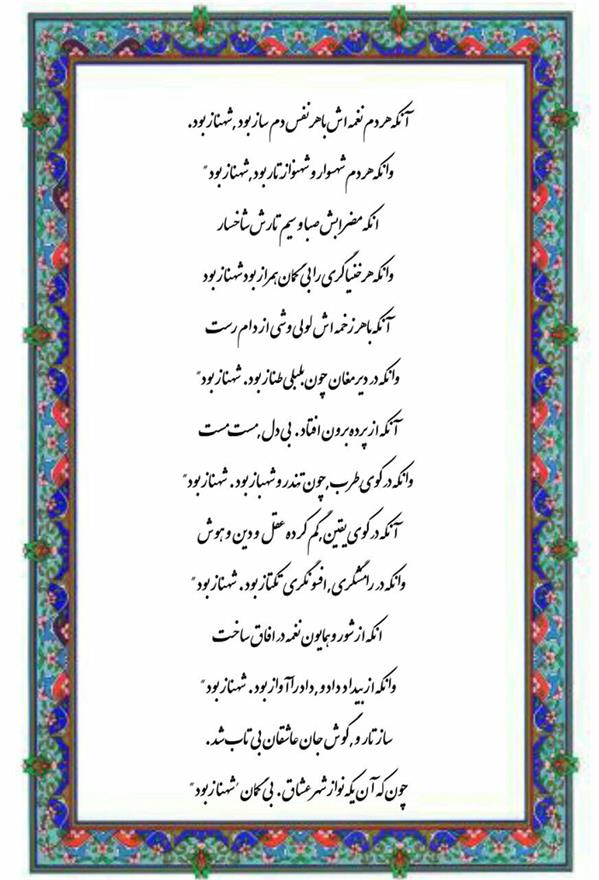 آنکه هر دم نغمه اش با هر نفس دم ساز بود, شهناز بود.
وانکه هر دم شهسوار و شهنواز تار بود, شهناز بود"
انکه مضرابش صبا و سیم تارش شاخسار
وانکه هر خنیاگری را بی گمان همراز بود شهناز بود
آنکه با هر زخمه اش لولی وشی از دام رست
وانکه در دیر مغان چون بلبلی طناز بود. شهناز بود"
آنکه از پرده برون افتاد. بی دل, مست مست
وانکه در کوی طرب, چون تندر و شهباز بود. شهناز بود"
آنکه در کوی یقین, گم کرده عقل و دین و هوش
وانکه در رامشگری, افسونگری تکتاز بود. شهناز بود"
انکه از شور و همایون نغمه در افاق ساخت
وانکه از بیداد داد و, داد را آواز بود. شهناز بود"
ساز تار و, گوش جان عاشقان بی تاب شد.
چون که آن یکه نواز شهر عشاق. بی گمان "شهناز بود"